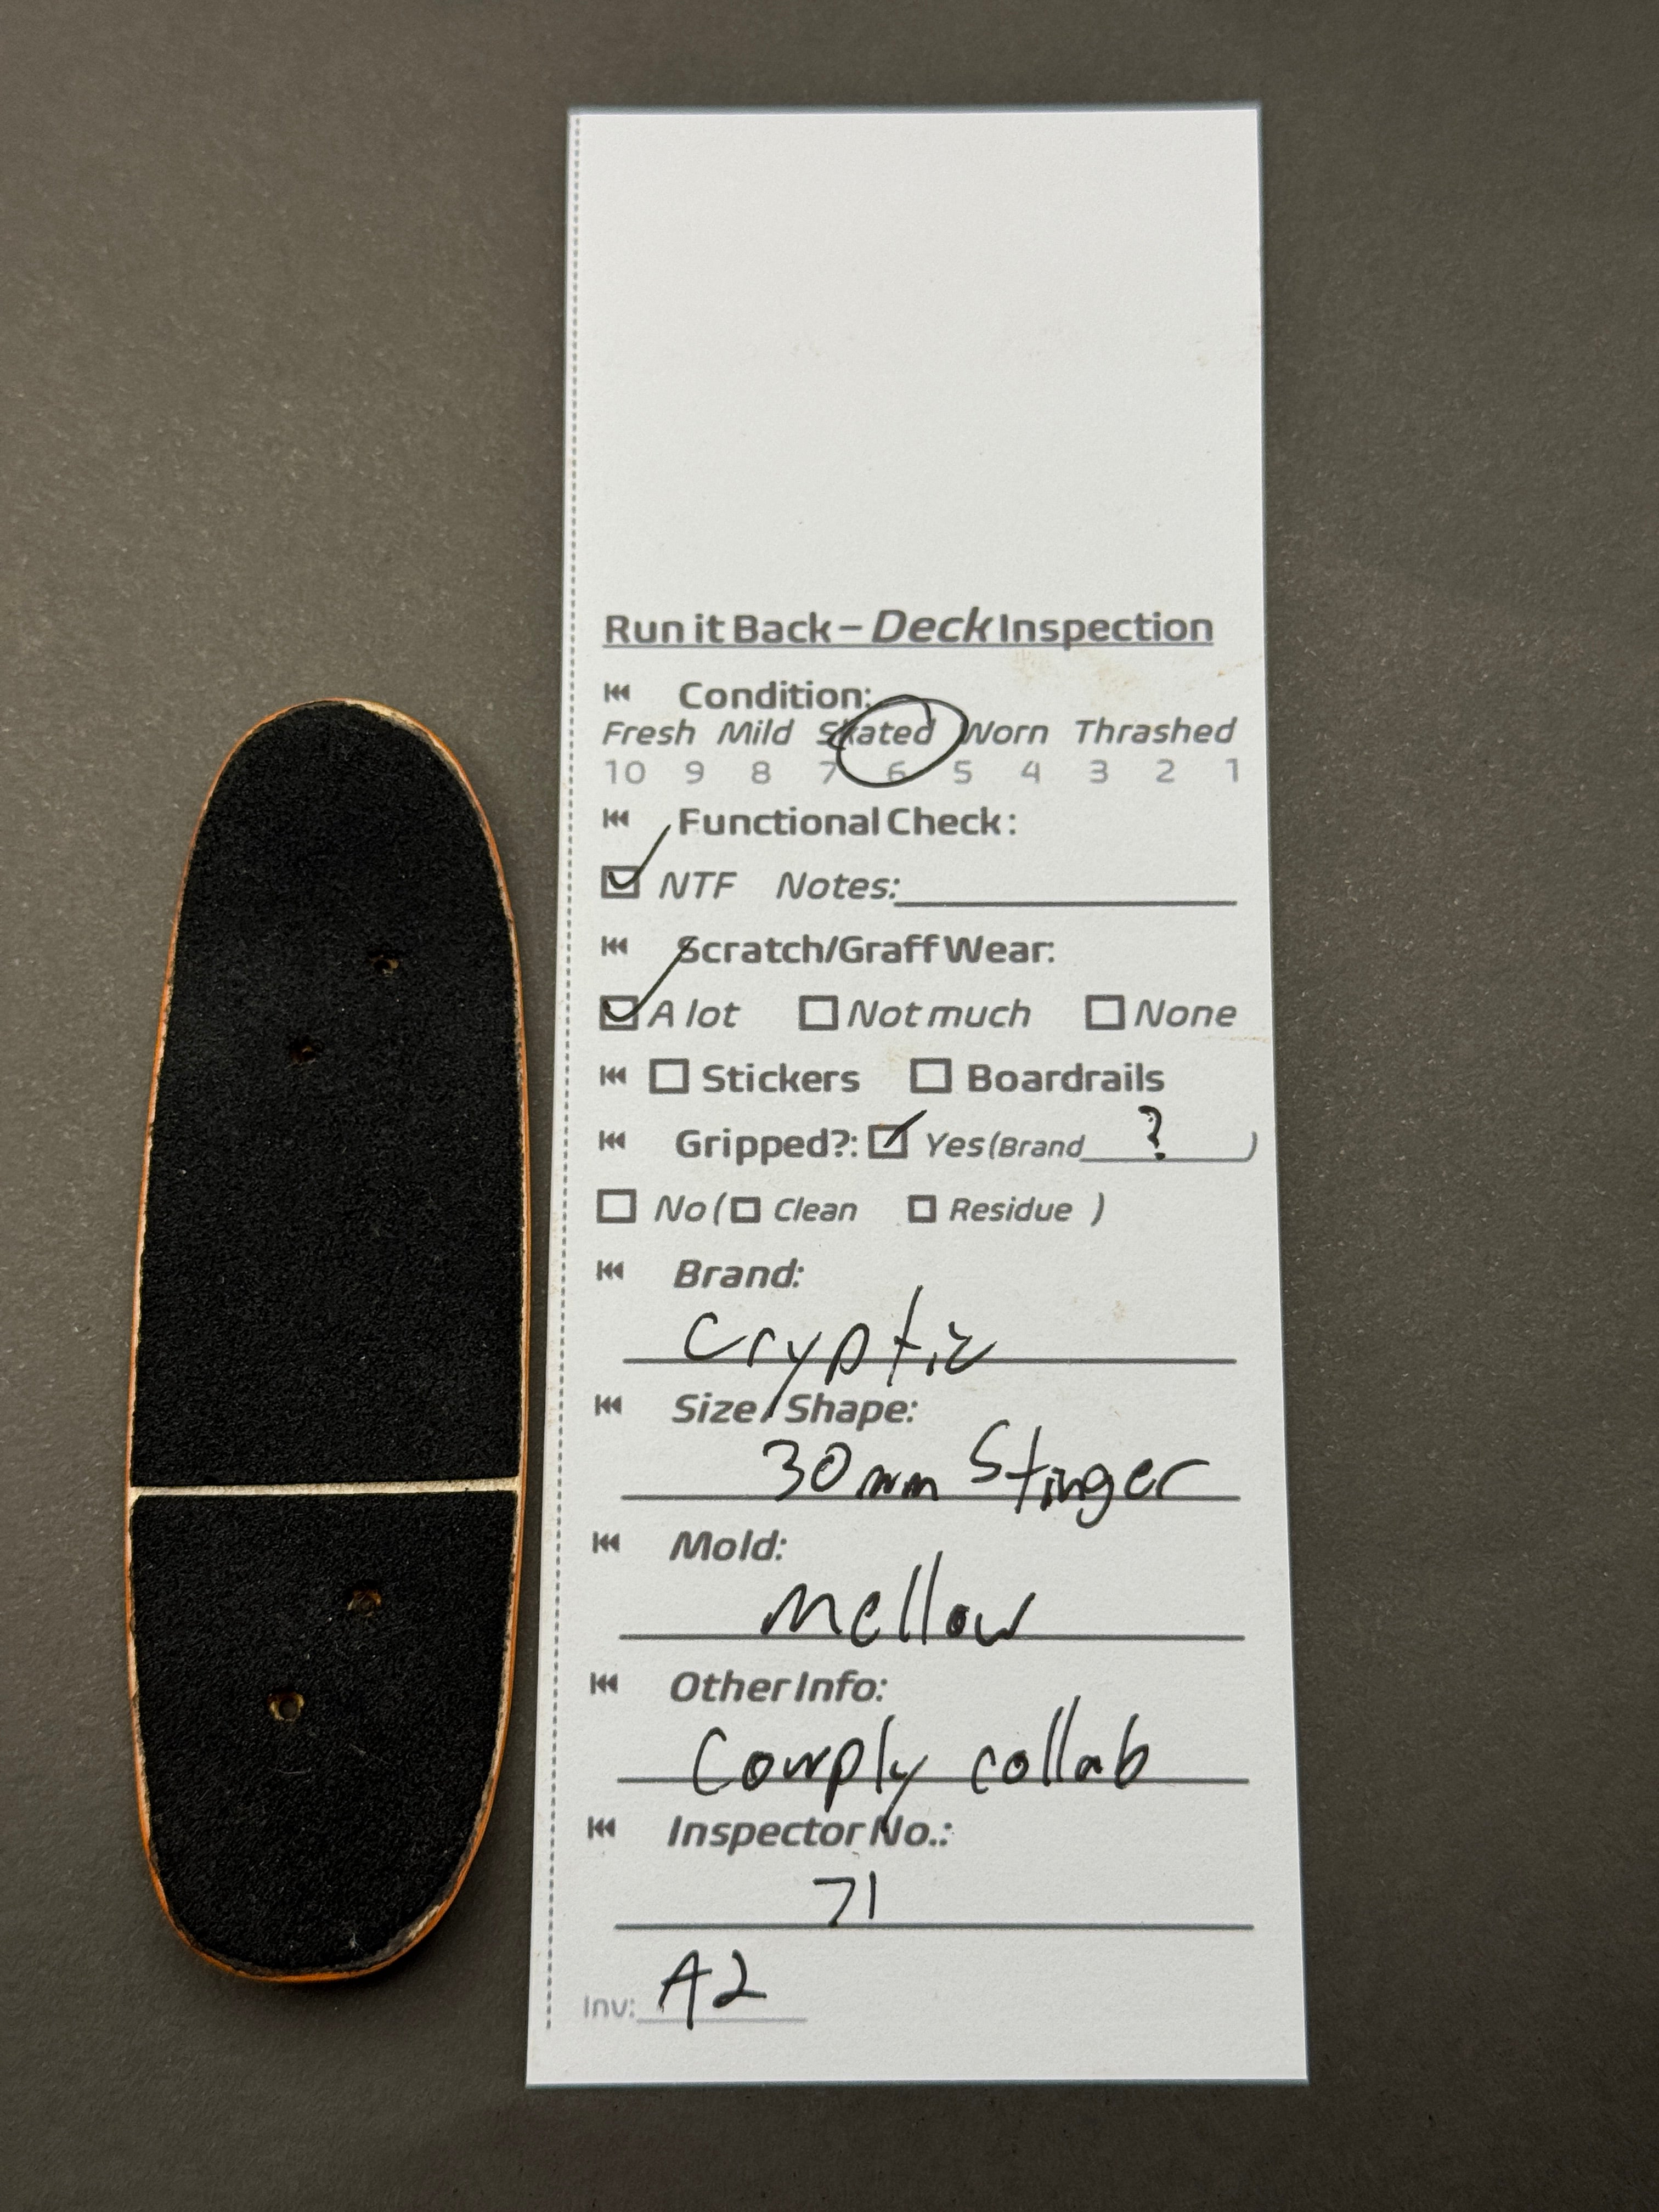 Run it Back – Deck Inspection
Condition:
Fresh Mild Skated Worn Thrashed
10 9 8 7 6 5 4 3 2 1
Functional Check:
NTF Notes:
Scratch/Graff Wear:
A lot Not much None
Stickers Boardrails
Gripped?: Yes (Brand ? )
No ( Clean Residue )
Brand:
Cryptic
Size/Shape:
30mm Stinger
Mold:
Mellow
Other Info:
Cowply collab
Inspector No.:
71
Inv: A2